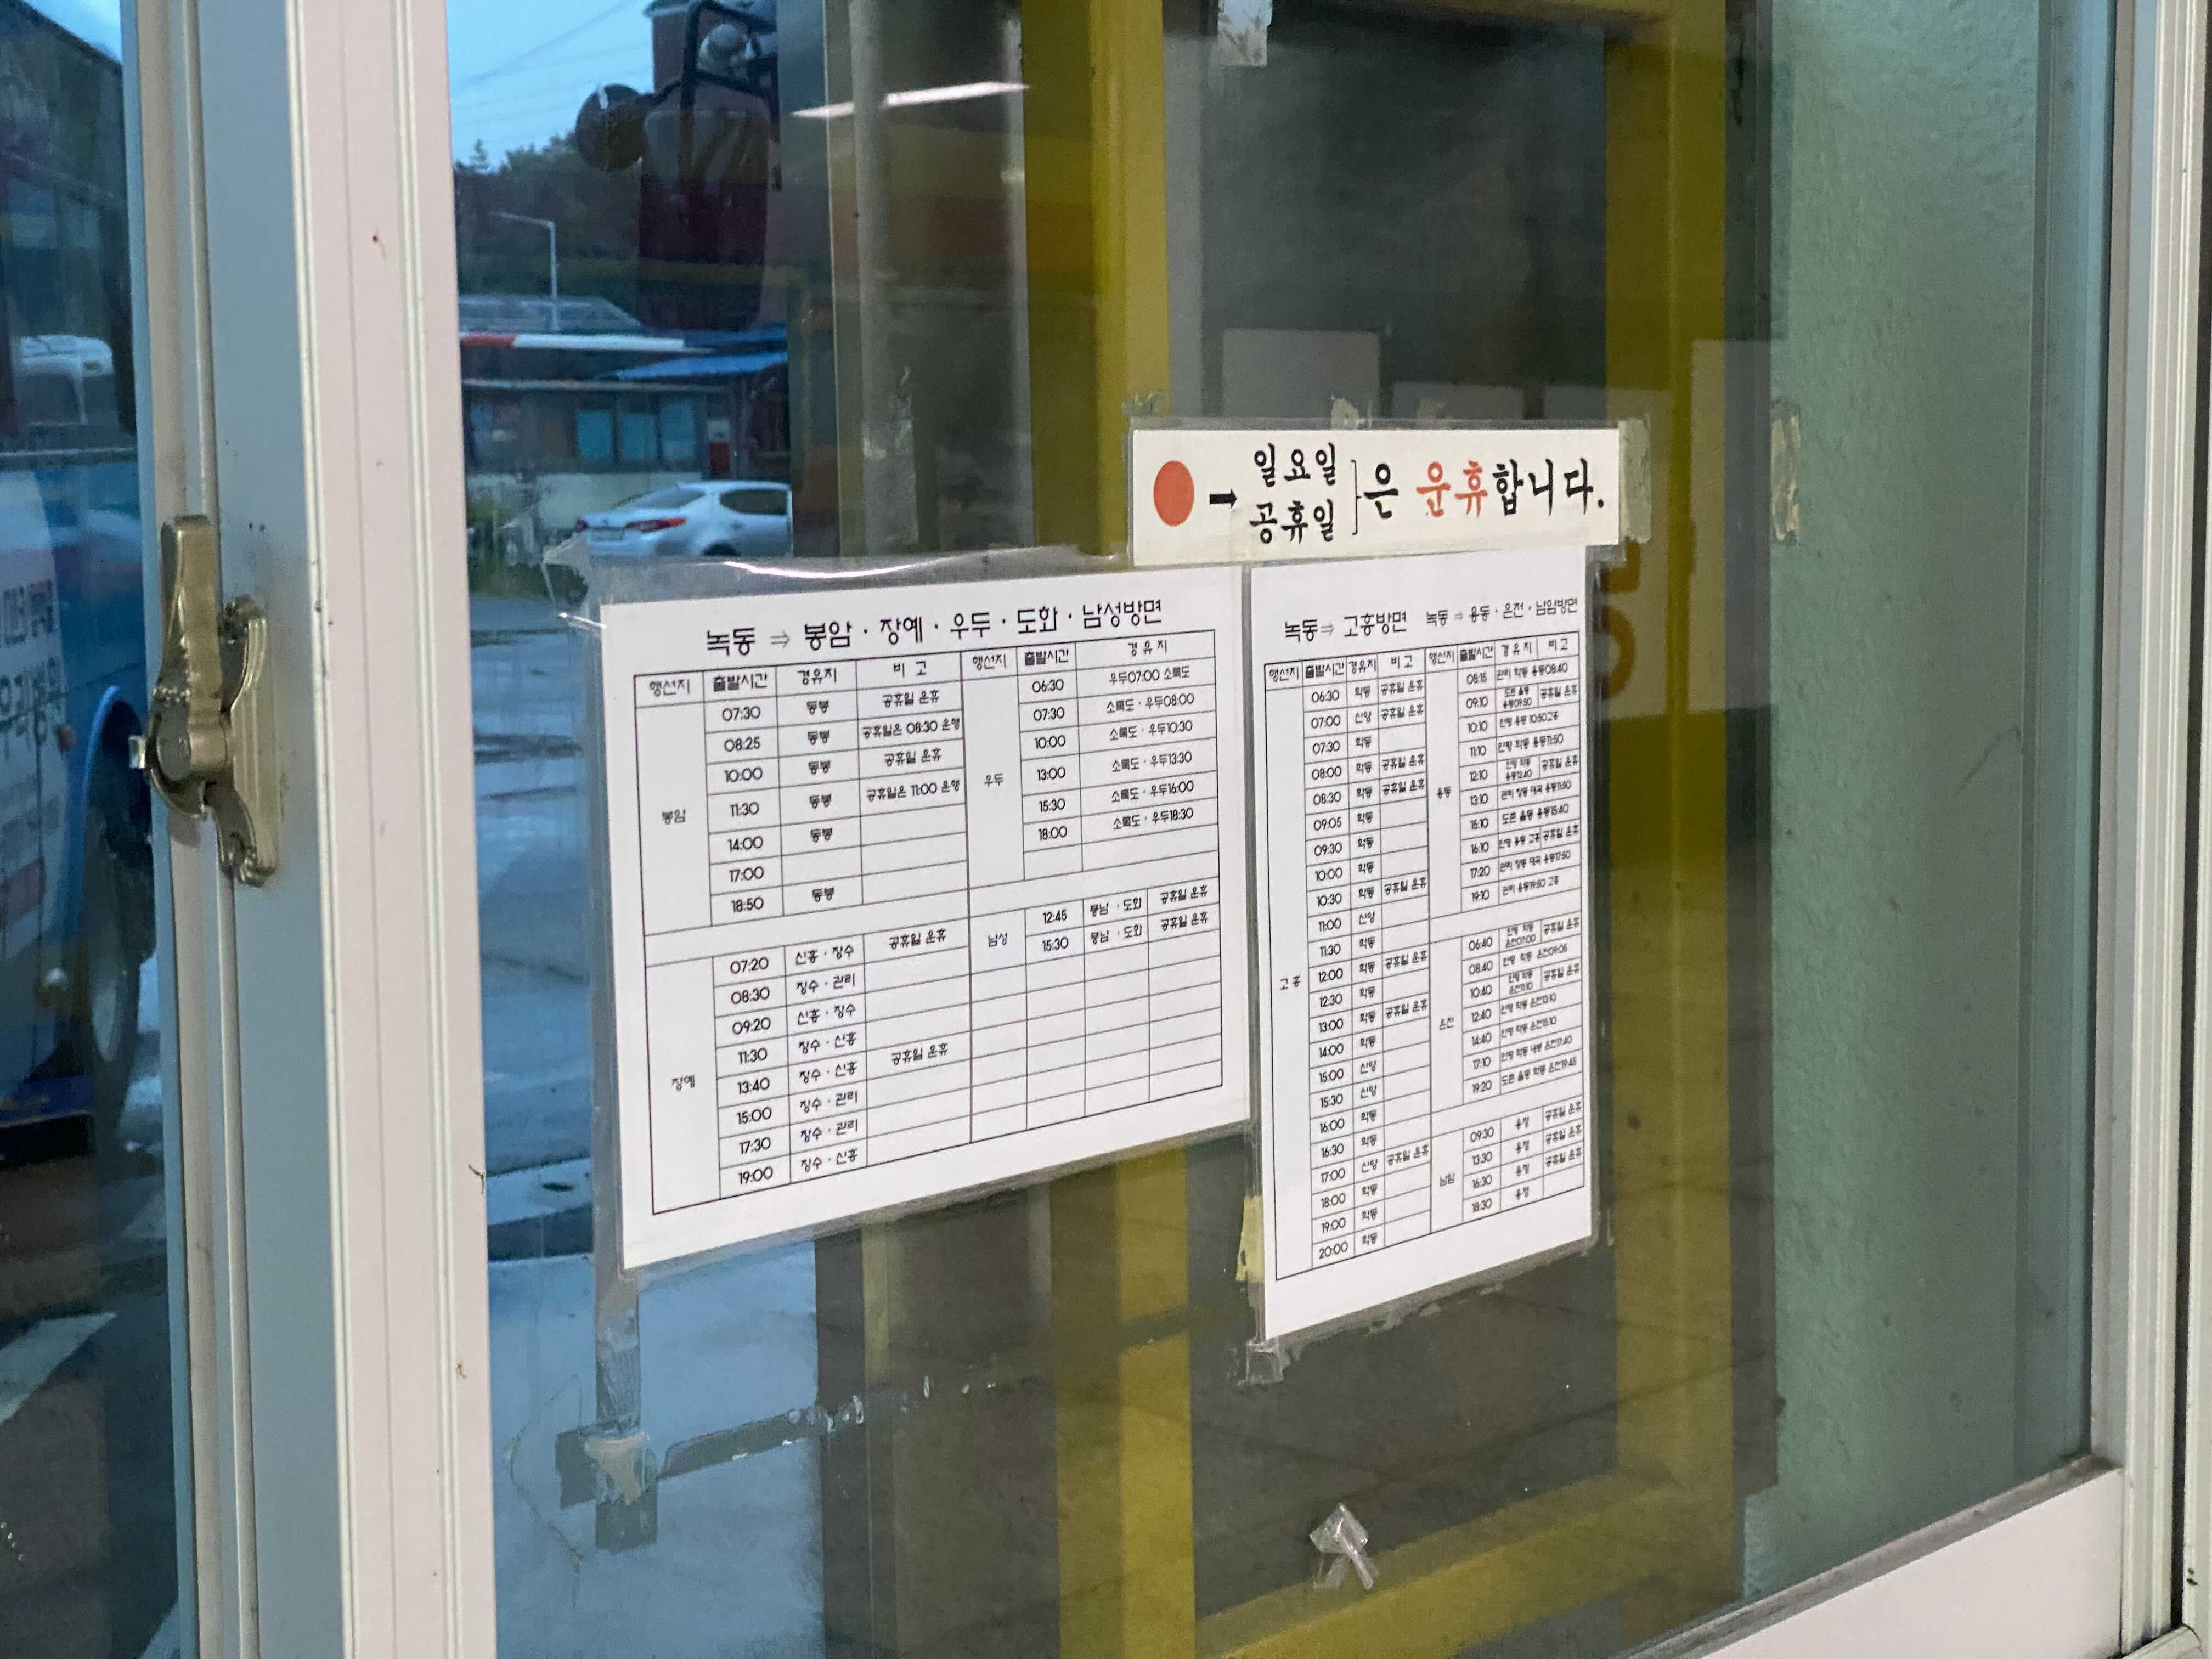 ● ➡ 일요일
공휴일 은 운휴합니다.
녹동 ⇒ 봉암 · 장예 · 우두 · 도화 · 남성방면
행선지 출발시간 경유지 비 고
봉암
07:30 동봉 공휴일 운휴
08:25 동봉 공휴일은 08:30 운행
10:00 동봉 공휴일 운휴
11:30 동봉 공휴일은 11:00 운행
14:00 동봉
17:00
18:50 동봉
장예
07:20 신흥 · 장수 공휴일 운휴
08:30 장수 · 관리
09:20 신흥 · 장수
11:30 장수 · 신흥
13:40 장수 · 신흥 공휴일 운휴
15:00 장수 · 관리
17:30 장수 · 관리
19:00 장수 · 신흥
행선지 출발시간 경 유 지
우두
06:30 우두07:00 소록도
07:30 소록도 · 우두08:00
10:00 소록도 · 우두10:30
13:00 소록도 · 우두13:30
15:30 소록도 · 우두16:00
18:00 소록도 · 우두18:30
남성
12:45 봉남 · 도화 공휴일 운휴
15:30 봉남 · 도화 공휴일 운휴
녹동⇒ 고흥방면
행선지 출발시간 경유지 비 고
고흥
06:30 학동 공휴일 운휴
07:00 신양 공휴일 운휴
07:30 학동
08:00 학동 공휴일 운휴
08:30 학동 공휴일 운휴
09:05 학동
09:30 학동
10:00 학동
10:30 학동 공휴일 운휴
11:00 신양
11:30 학동
12:00 학동 공휴일 운휴
12:30 학동
13:00 학동 공휴일 운휴
14:00 학동
15:00 신양
15:30 신양
16:00 학동
16:30 학동
17:00 신양 공휴일 운휴
18:00 학동
19:00 학동
20:00 학동
녹동 ⇒ 용동 · 온전 · 남암방면
행선지 출발시간 경 유 지 비 고
용동
08:15 관리 학동 용동08:40
09:10 용동09:50 공휴일 운휴
10:10 용동 10:50고흥
11:10 학동 용동11:50
12:10 용동12:40 공휴일 운휴
13:10 관리 장동
15:10 용동15:40
16:10 용동 고흥 공휴일 운휴
17:20 관리 장동 용동17:50
19:10 관리 용동19:50 고흥
온전
06:40 온전07:00 공휴일 운휴
08:40 학동 온전09:05
10:40 온전11:10 공휴일 운휴
12:40 학동 온전13:10
14:40 학동 온전15:10
17:10 학동 온전17:40
19:20 학동 온전19:45
남암
09:30 용정 공휴일 운휴
13:30 용정 공휴일 운휴
16:30 용정 공휴일 운휴
18:30 용정